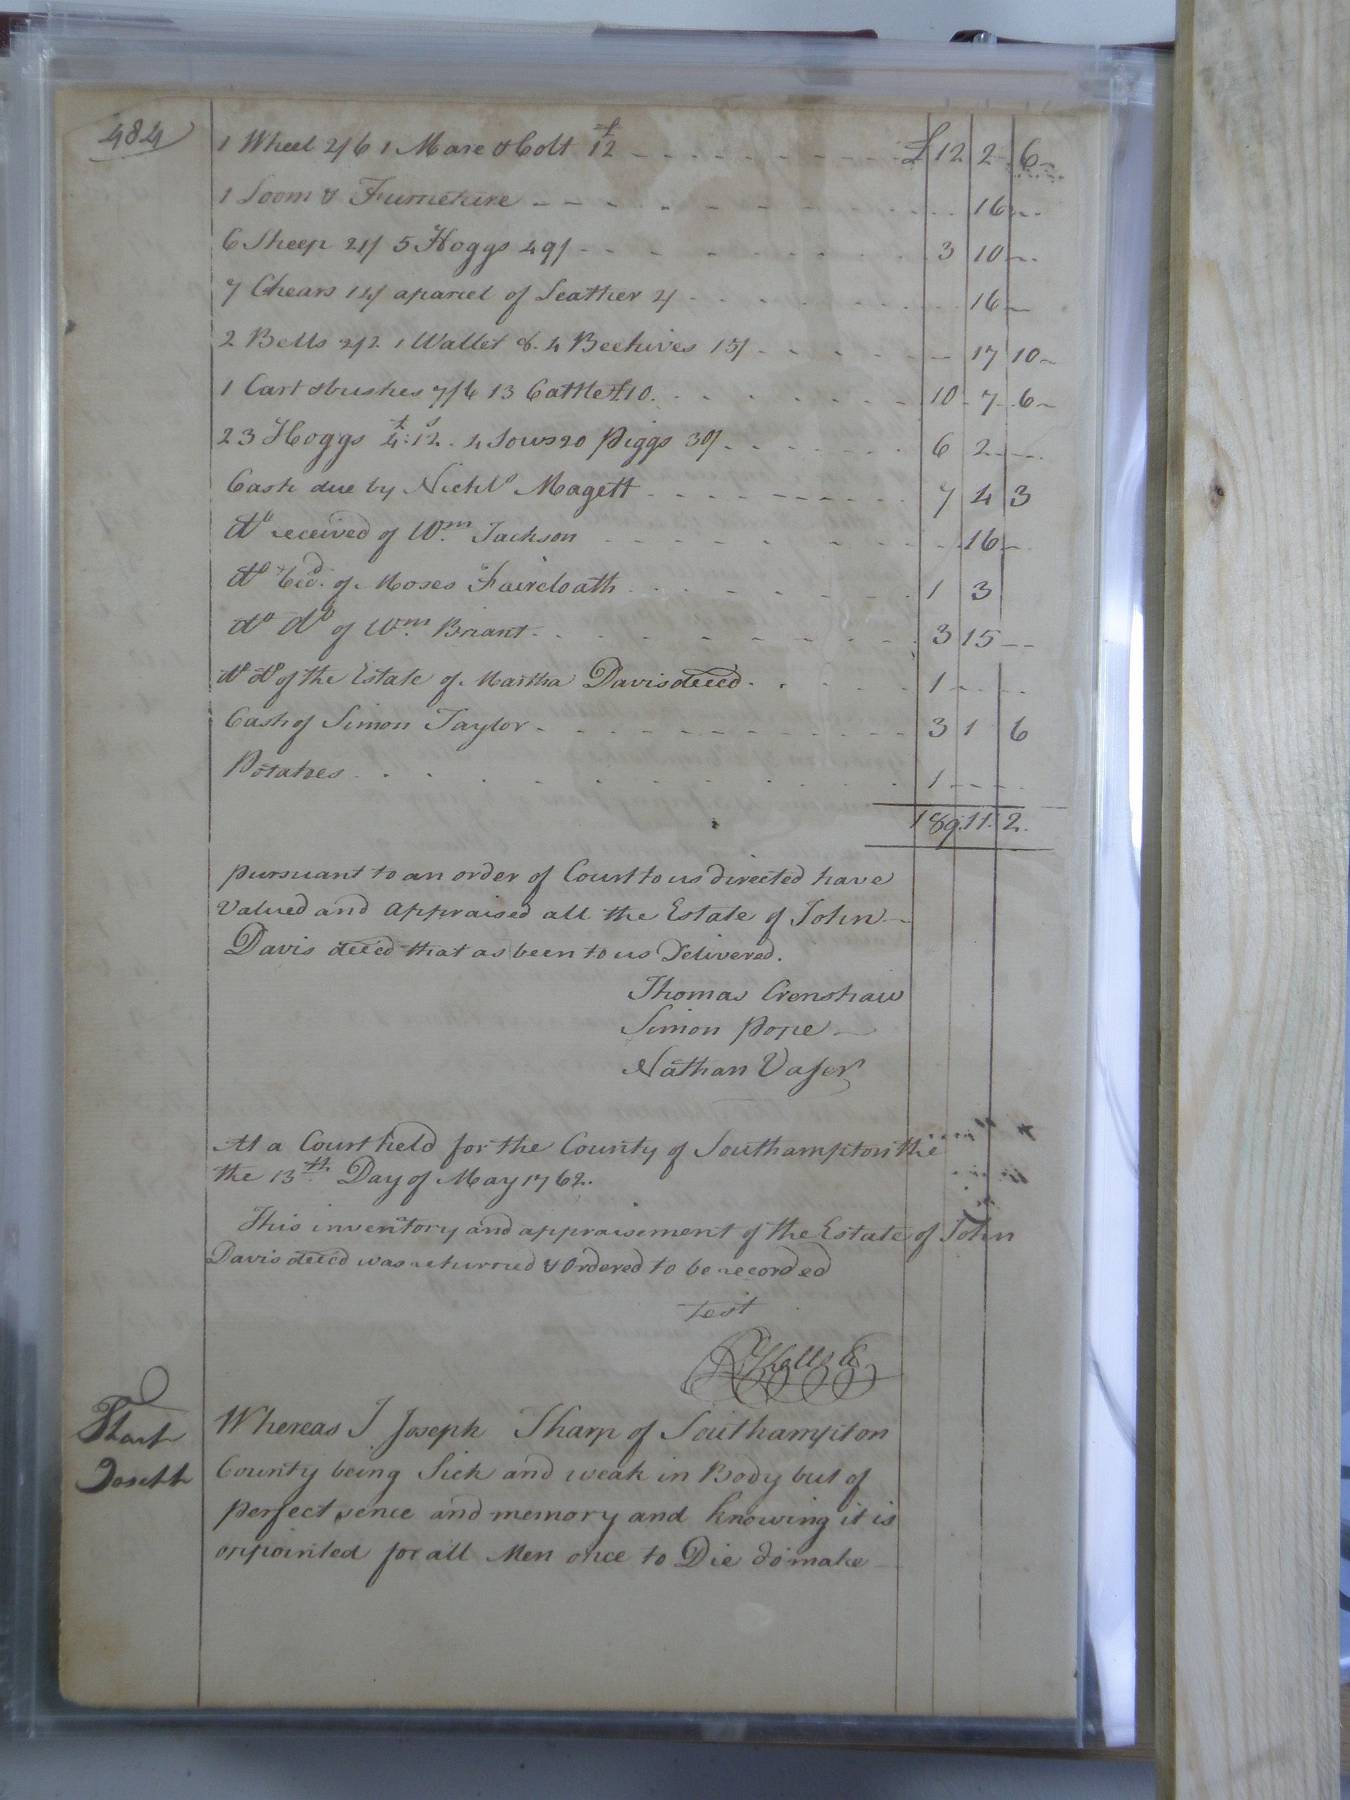 484
1 Wheel 2/6 1 Mare & Colt £12 £12 2 6
1 Loom & Furneture 16
6 Sheep 21/ 5 Hoggs 49/ 3 10
7 Chears 14/ aparcel of Leather 2/ 16
2 Bells 2/2 1 Wallet & 4 Beehives 15/ 17 10
1 Cart & bushes 7/6 13 Cattle £10 10 7 6
23 Hoggs £4:12 4 Sows 20 Piggs 30/ 6 2
Cash due by Nichls Magett 7 4 3
do received of Wm. Jackson 16
do Recd. of Moses Faircloath 1 3
do do of Wm. Briant 3 15
do do of the Estate of Martha Davis decd 1
Cash of Simon Taylor 3 1 6
Potatoes 1
189.11.2.
pursuant to an order of Court to us directed have
Valued and appraised all the Estate of John
Davis decd that as been to us Delivered.
Thomas Crenshaw
Simon Pope
Nathan Vaser
At a Court held for the County of Southampton the
the 13th Day of May 1762.
This inventory and appraisement of the Estate of John
Davis decd was returned & Ordered to be recorded
Test
Sharp
Joseph
Whereas I Joseph Sharp of Southampton
County being Sick and weak in Body but of
perfect sence and memory and knowing it is
appointed for all Men once to Die do make